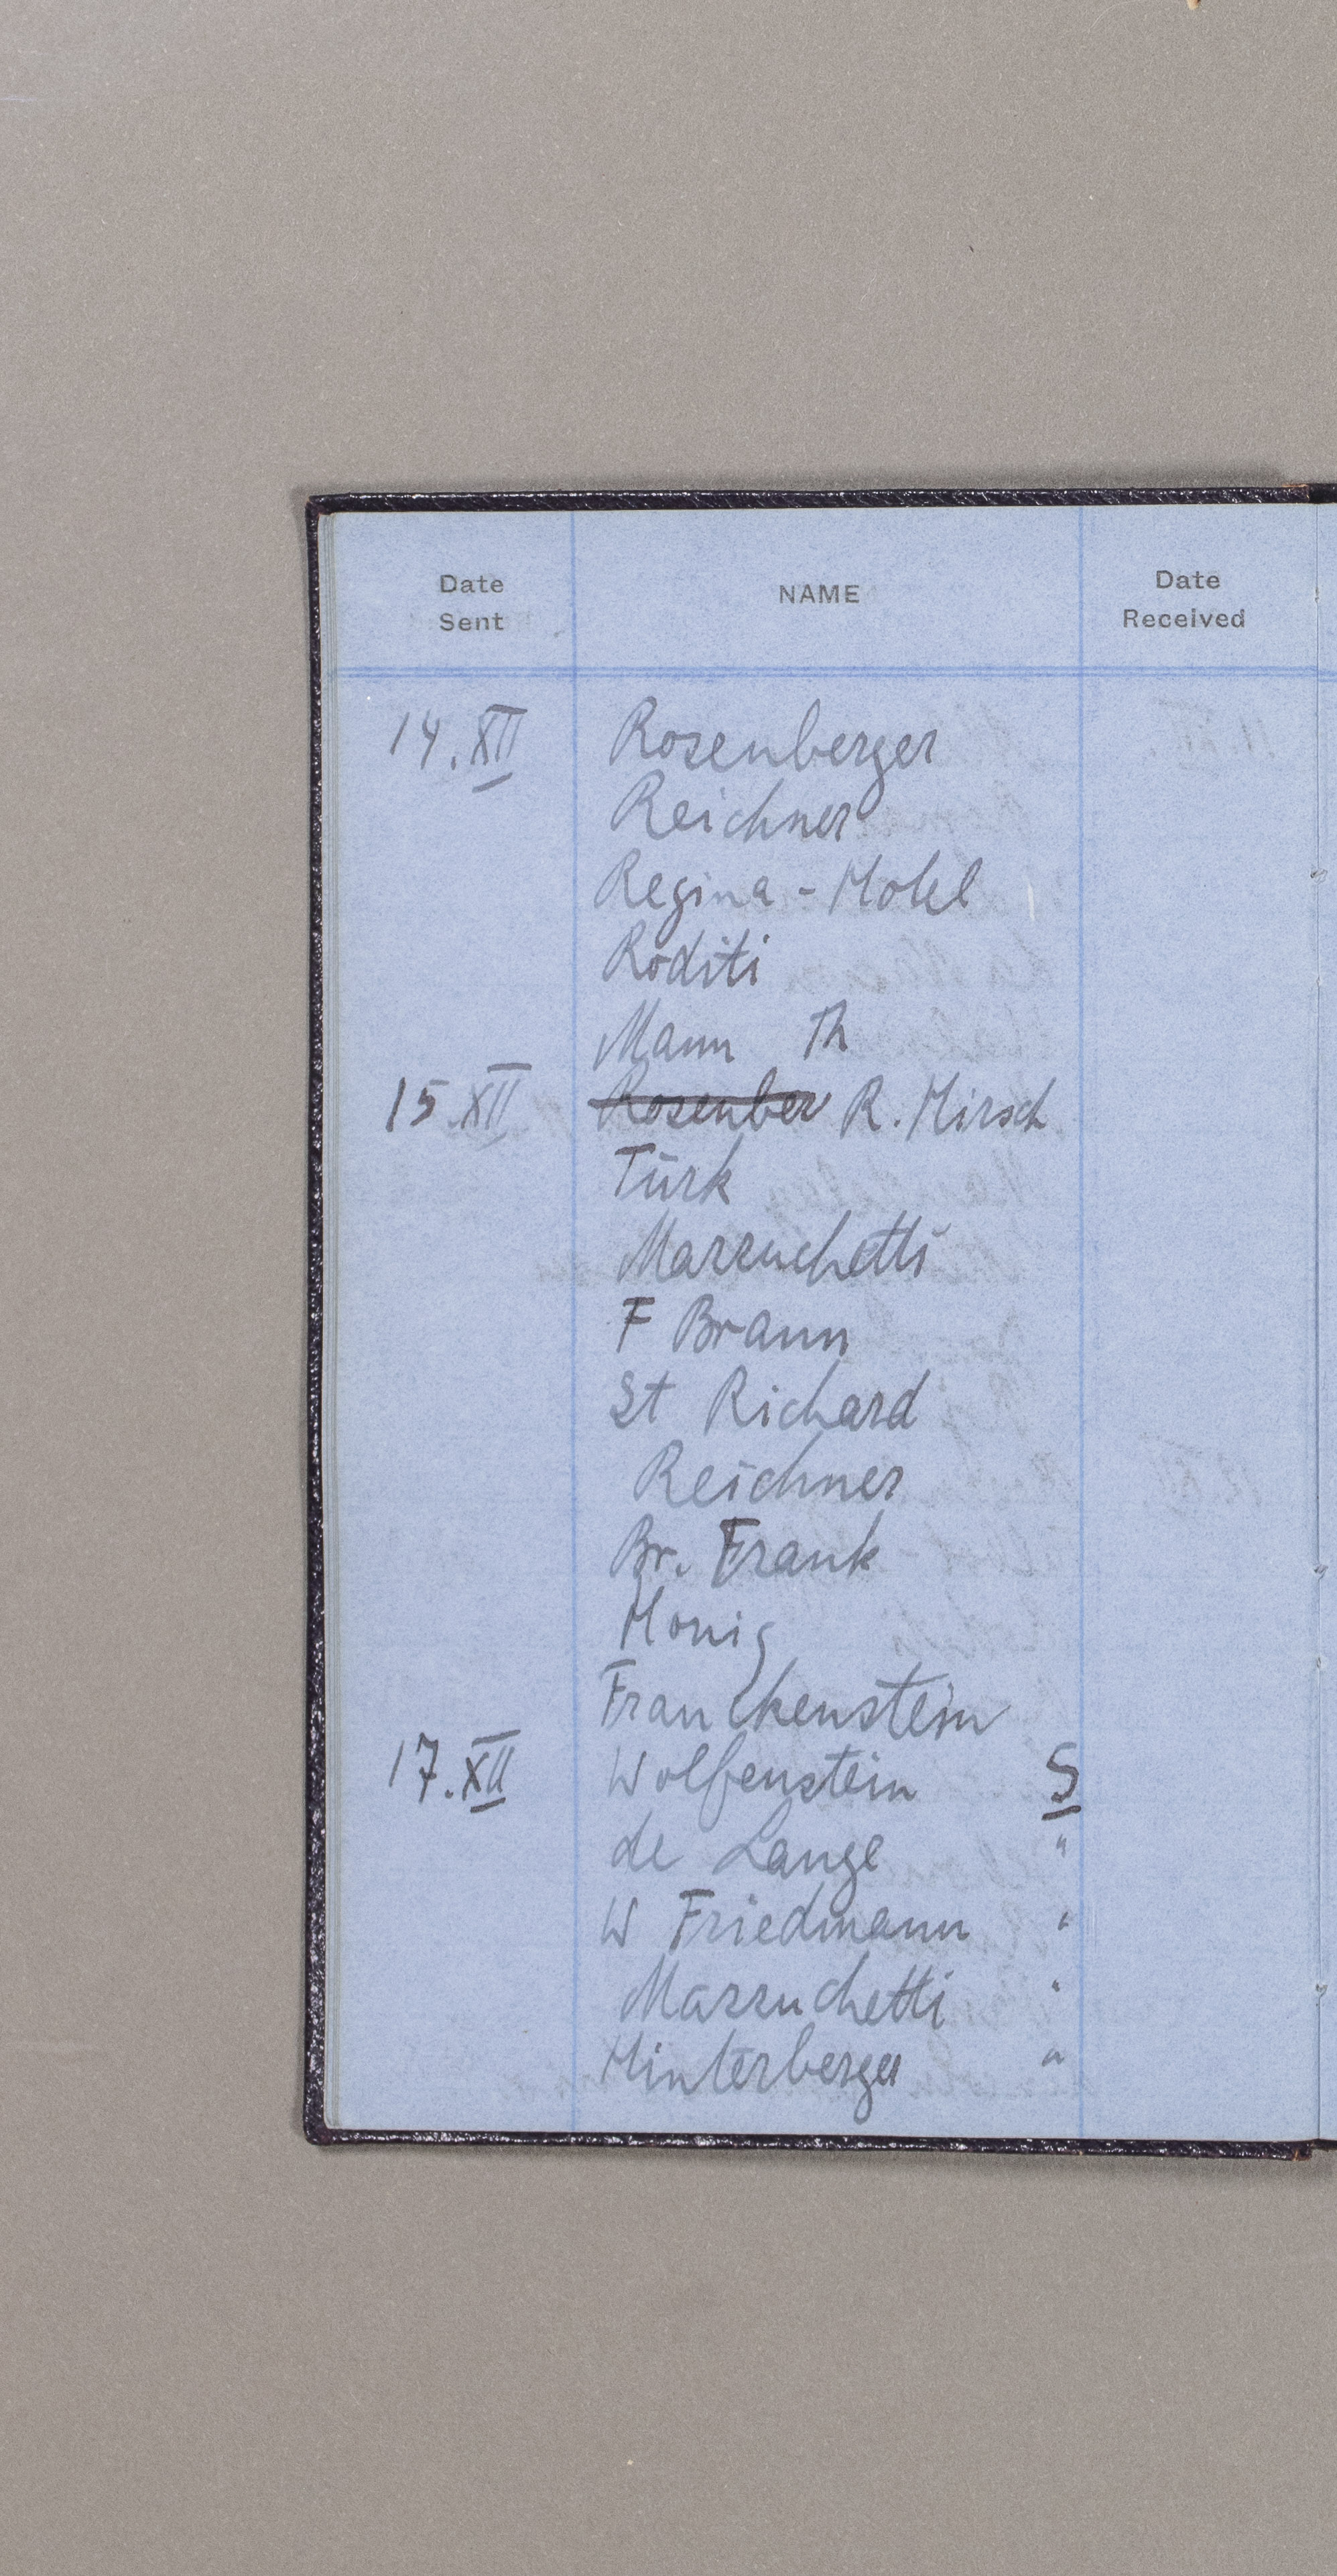 Date Sent NAME Date Received
14.XII Rosenberger
Reichner
Regina-Hotel
Roditi
Mann Th
15.XII Rosenber R. Hirsch
Türk
Marruchetti
F Braun
St Richard
Reichner
Br. Frank
Honig
Franckenstein
17.XII Wolfenstein S
de Lange "
W Friedmann "
Marruchetti "
Hinterberger "